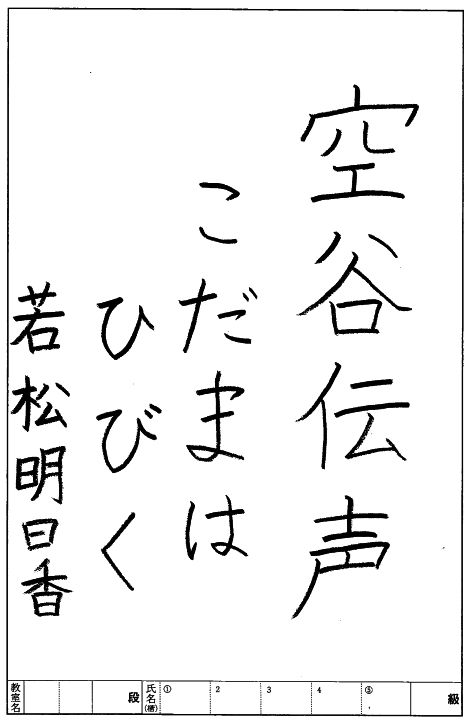 空谷伝声
こだまは
ひびく
若松明日香
教室名 段 氏名(楷) ① 2 3 4 ⑤ 級